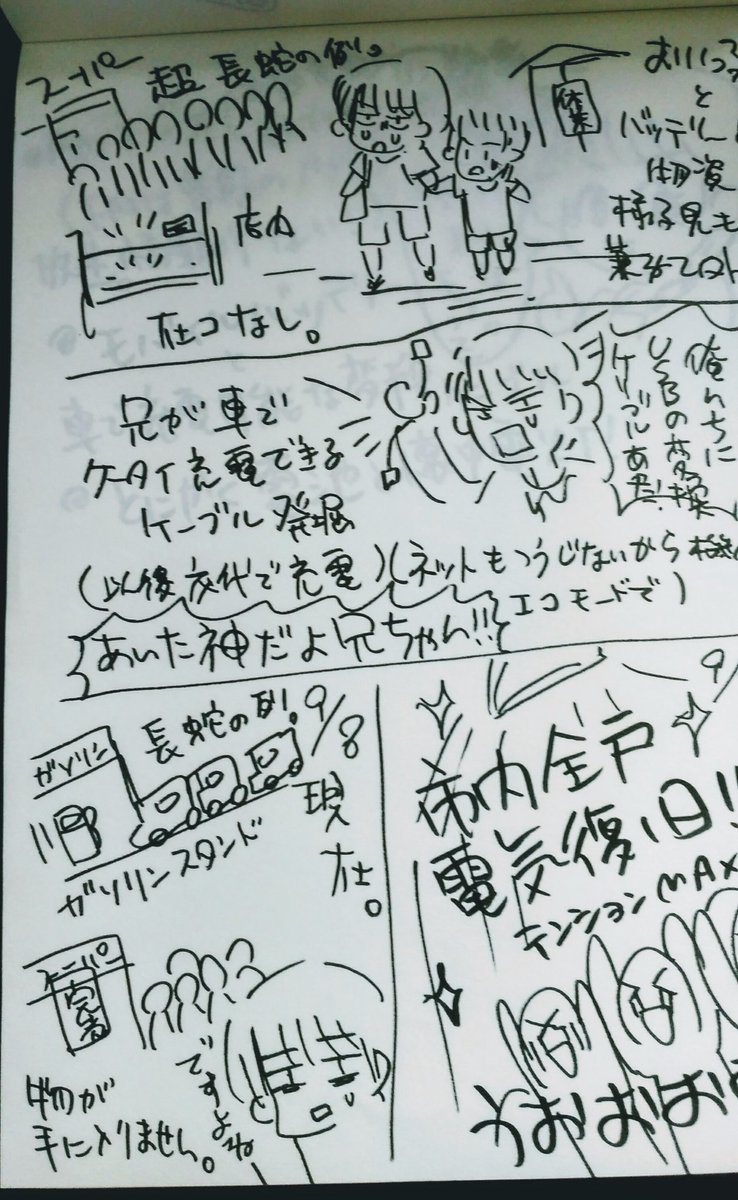 スーパー
超長蛇の列。
店内
在コなし。
休業
おいっ
と
バッテリー
物資
様子見も
兼ねて
俺んちに
USBの
ケーブルあった!
兄が車で
ケータイ充電できる
ケーブル発掘
(以後交代で充電)
(ネットもつうじないから
エコモードで)
あんた神だよ兄ちゃん!!
9/
市内全戸
電気復旧!!
テンションMAX
うおおおお
ガソリン
長蛇の列!
9/8
現在。
ガソリンスタンド
スーパー
完売
物が
手に入りません。
ですよね